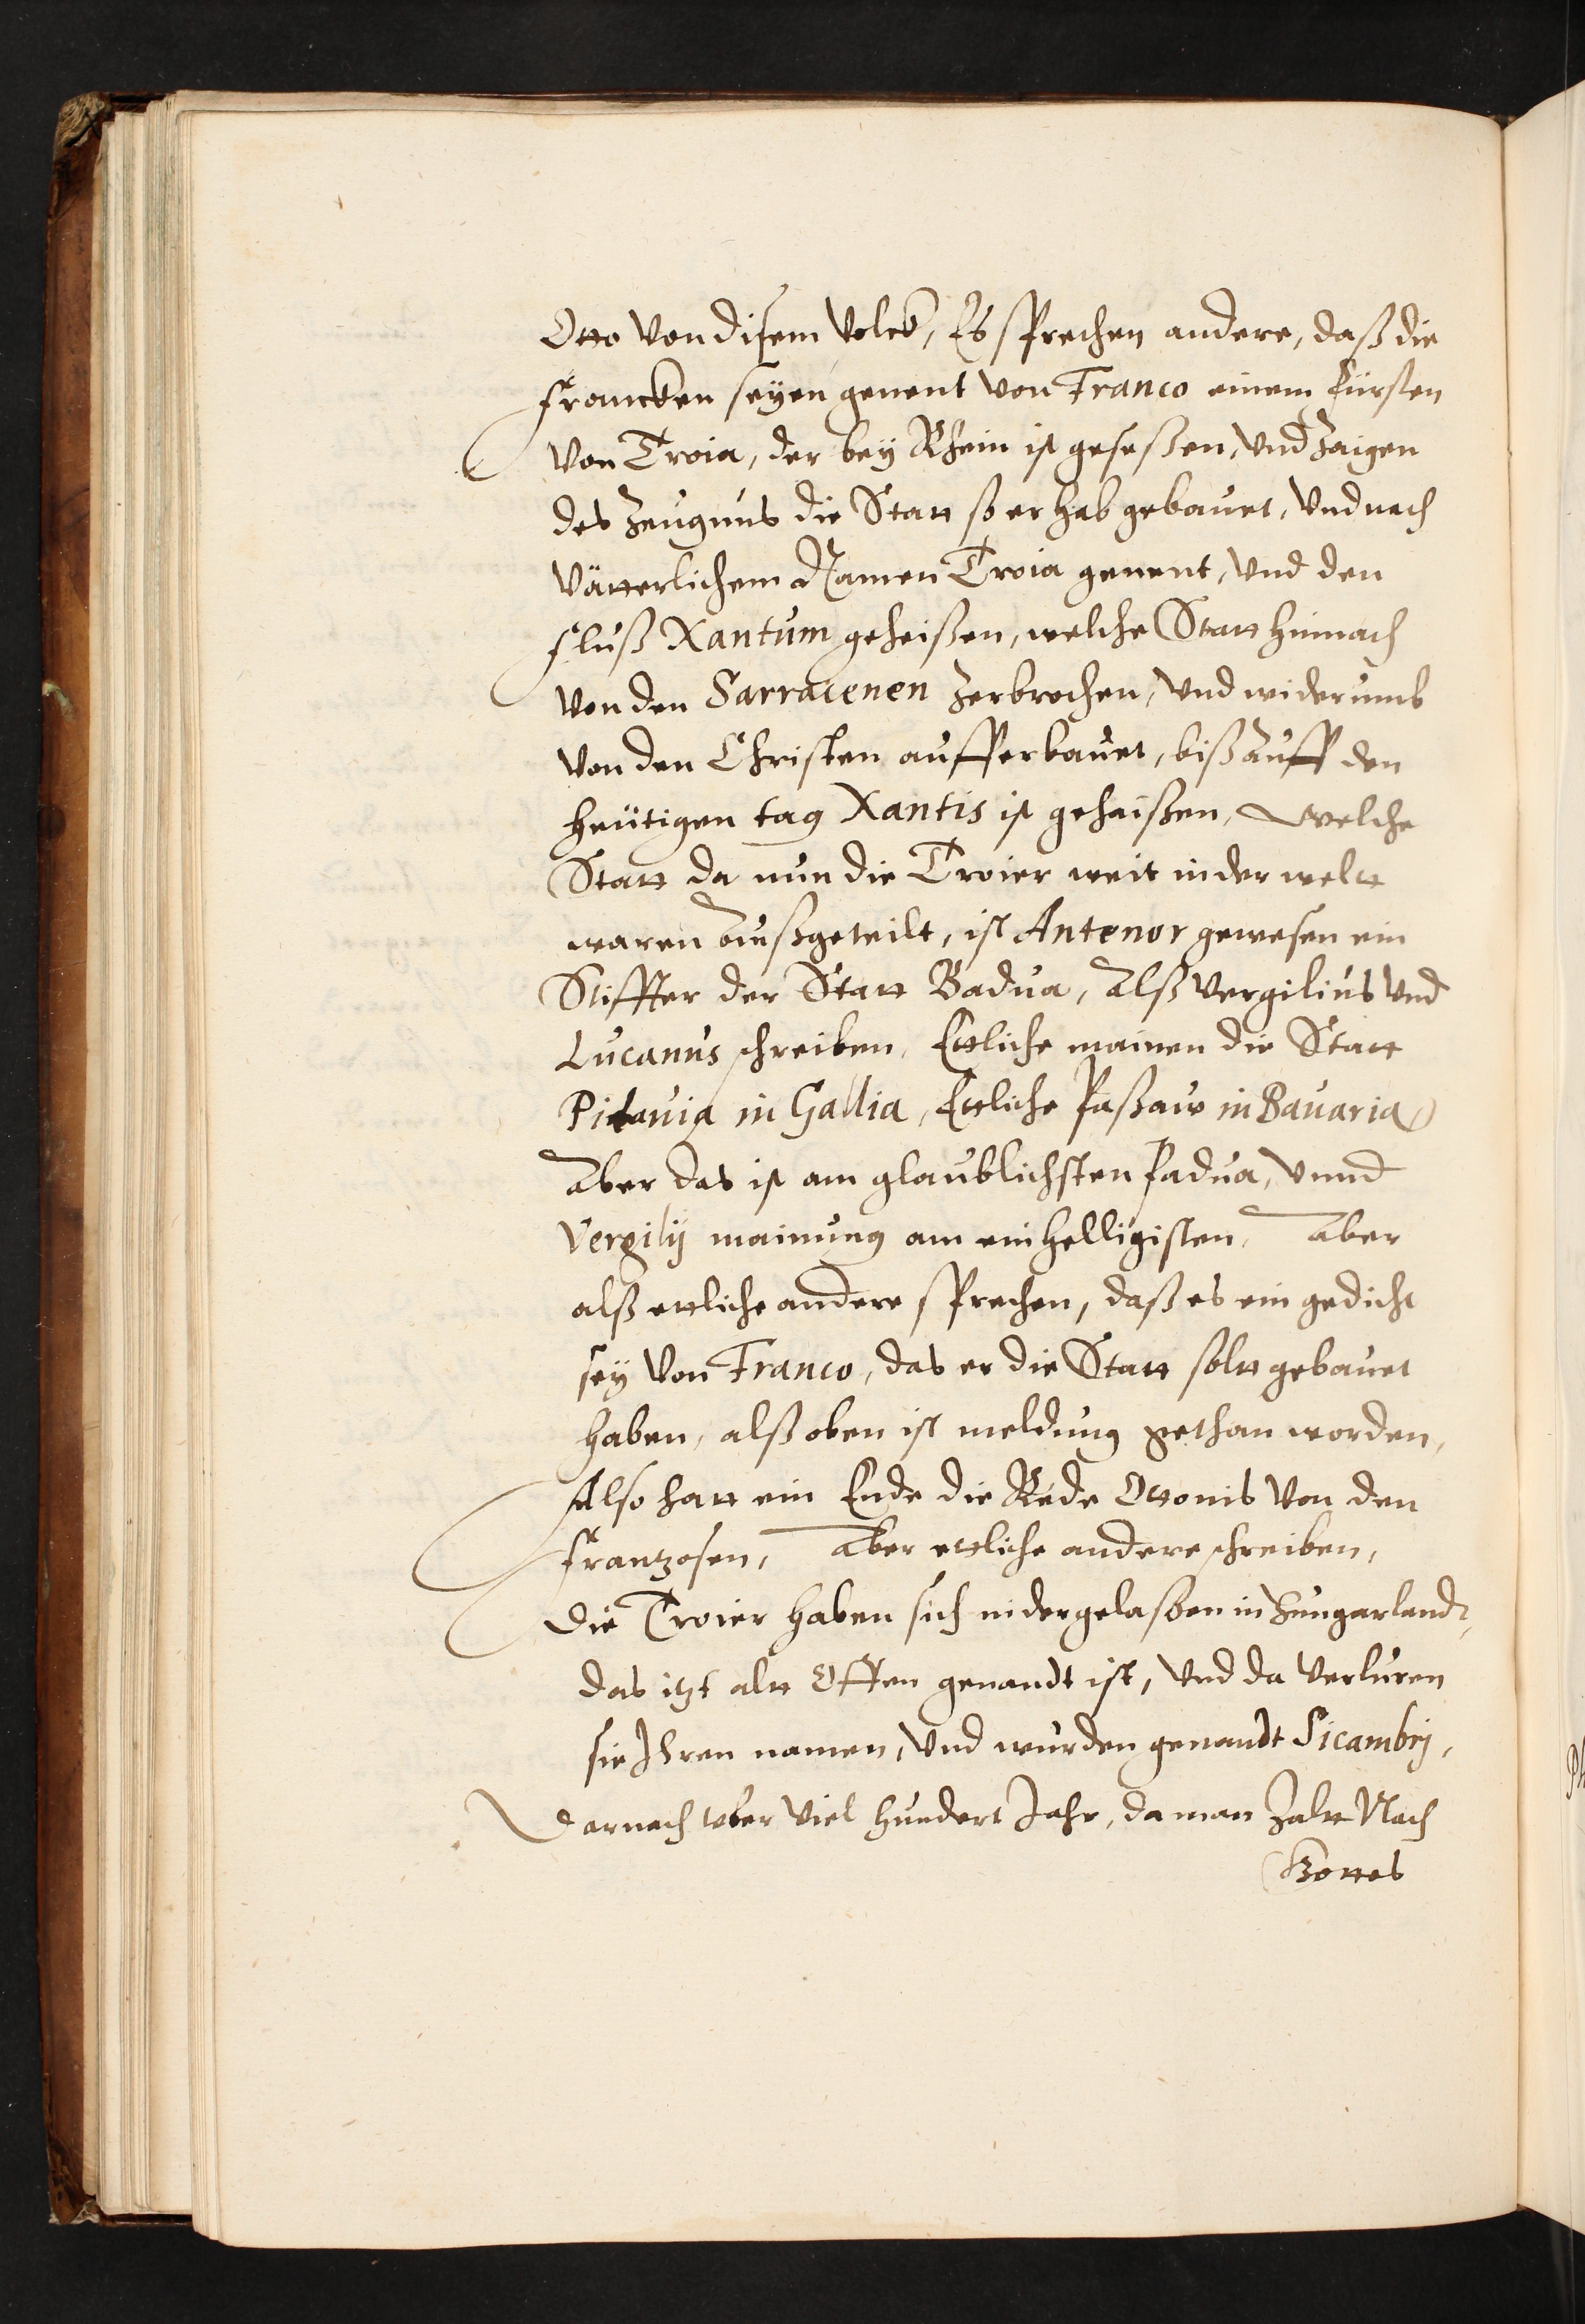 Otto von disem volck, Es sprechen andere, daß die
Francken seyen genent von Franco einem Fürsten
von Troia, der bey Rhein ist geseßen, vnd zaigen
des zeugnus die Statt so er hab gebauet, vnd nach
vätterlichem Namen Troia genent, vnd den
Fluß Xantum geheißen, welche Statt hinnach
von den Sarracenen zerbrochen, vnd widerumb
von den Christen aufferbauet, biß auff den
heütigen tag Xantis ist gehaißen, welche
Statt da nun die Troier weit in der weltt
waren außgeteilt, ist Antenor gewesen ein
Stiffter der Statt Badua, alß Vergilius vnd
Lucanus schreiben, Ettliche mainen die Statt
Pictauia in Gallia, Ettliche Paßaw in Bauaria
Aber das ist am glaublichsten Padua, vnnd
Vergilij mainung am einhelligisten, Aber
alß ettliche andere sprechen, daß es ein gedicht
sey von Franco, das er die Statt soltt gebauet
haben, alß oben ist meldung gethan worden,
Also hatt ein Ende die Rede Ottonis von den
Frantzosen, Aber ettliche andere schreiben,
die Troier haben sich nidergelaßen in Hungarlandt,
das itzt altt Offen genandt ist, vnd da verluren
sie Ihren namen, vnd wurden genandt Sicambrj,
Darnach vber viel hundert Jahr, da man zaltt Nach
Gottes